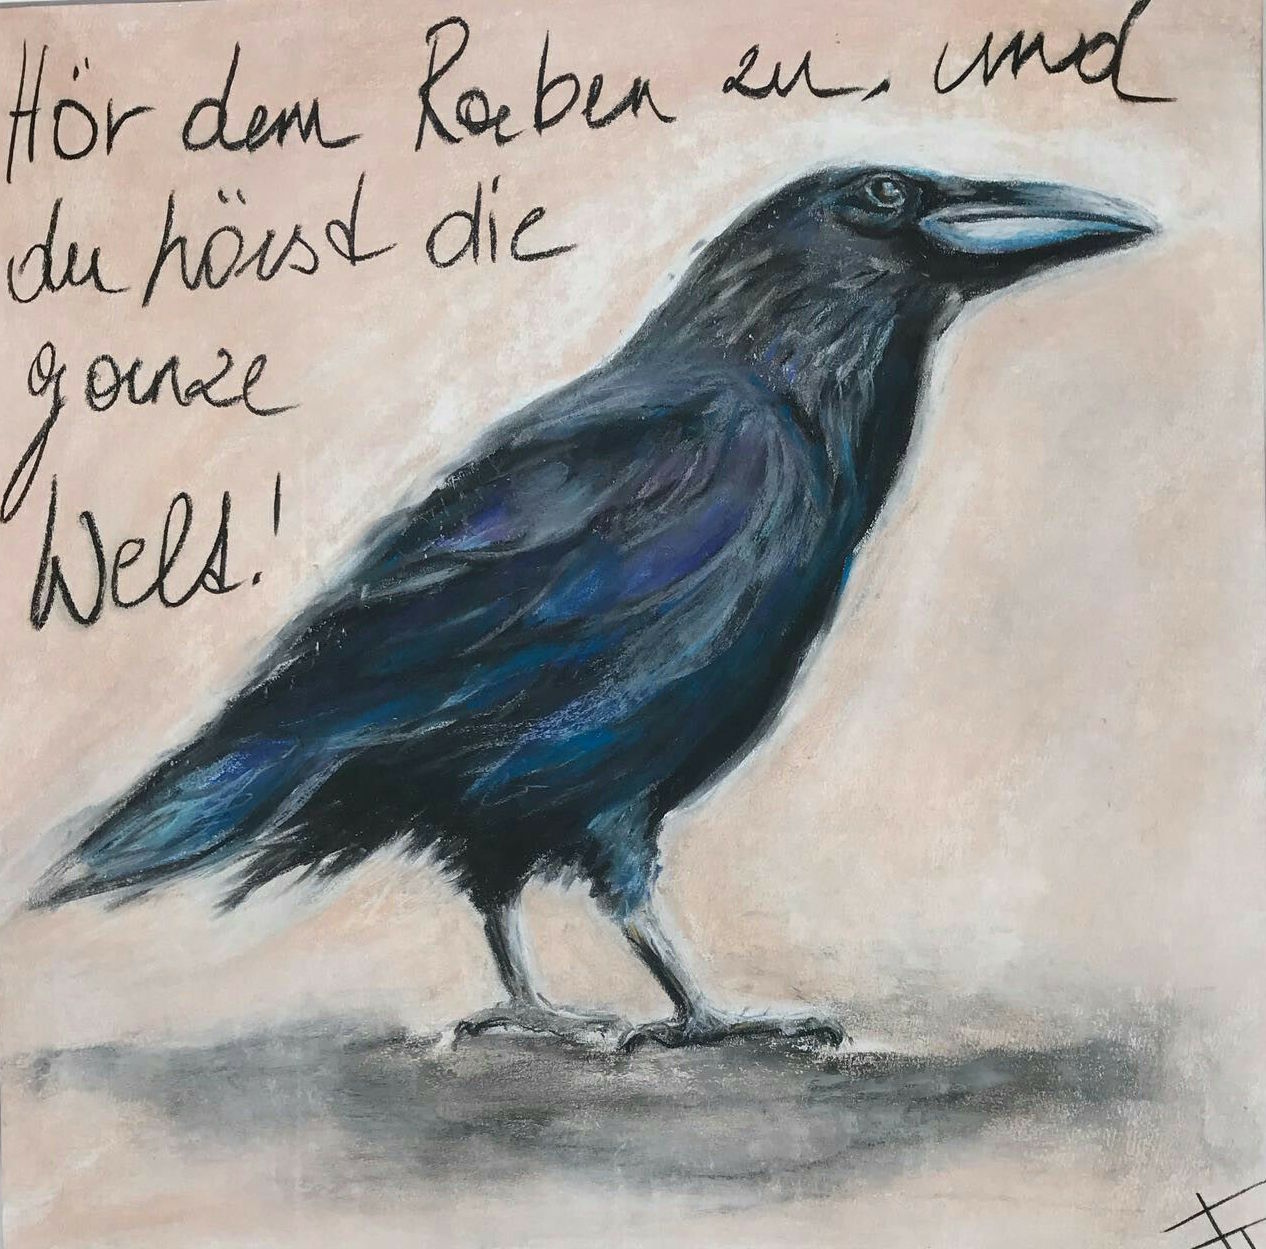 Hör dem Raben zu, und
du hörst die
ganze
Welt!